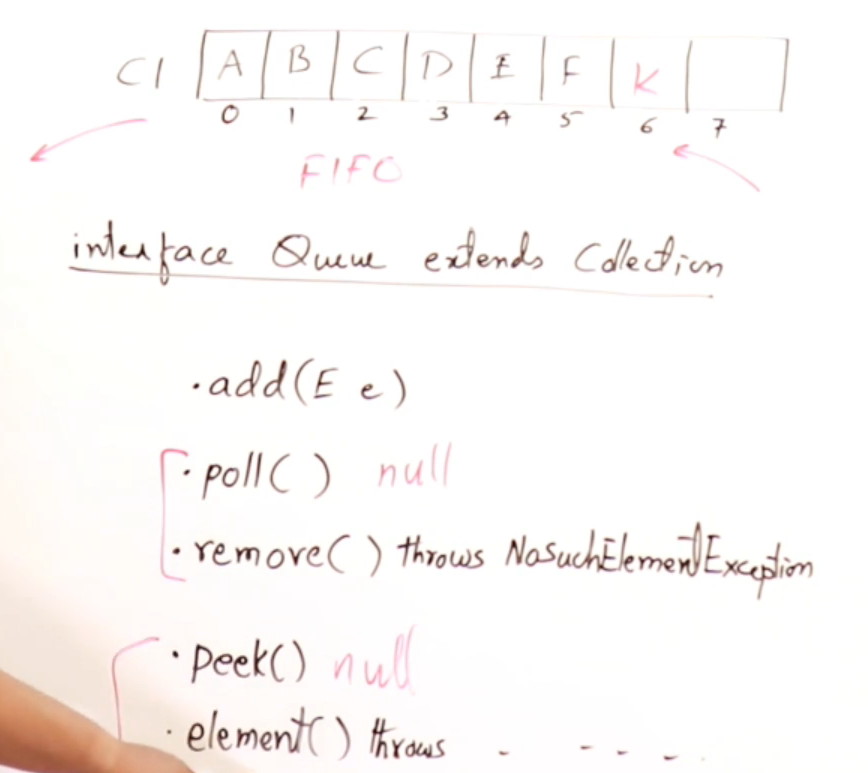 C1 A B C D E F K
0 1 2 3 4 5 6 7
FIFO
interface Queue extends Collection
.add(E e)
.poll( ) null
.remove( ) throws NosuchElementException
.peek() null
.element( ) throws - - - - .